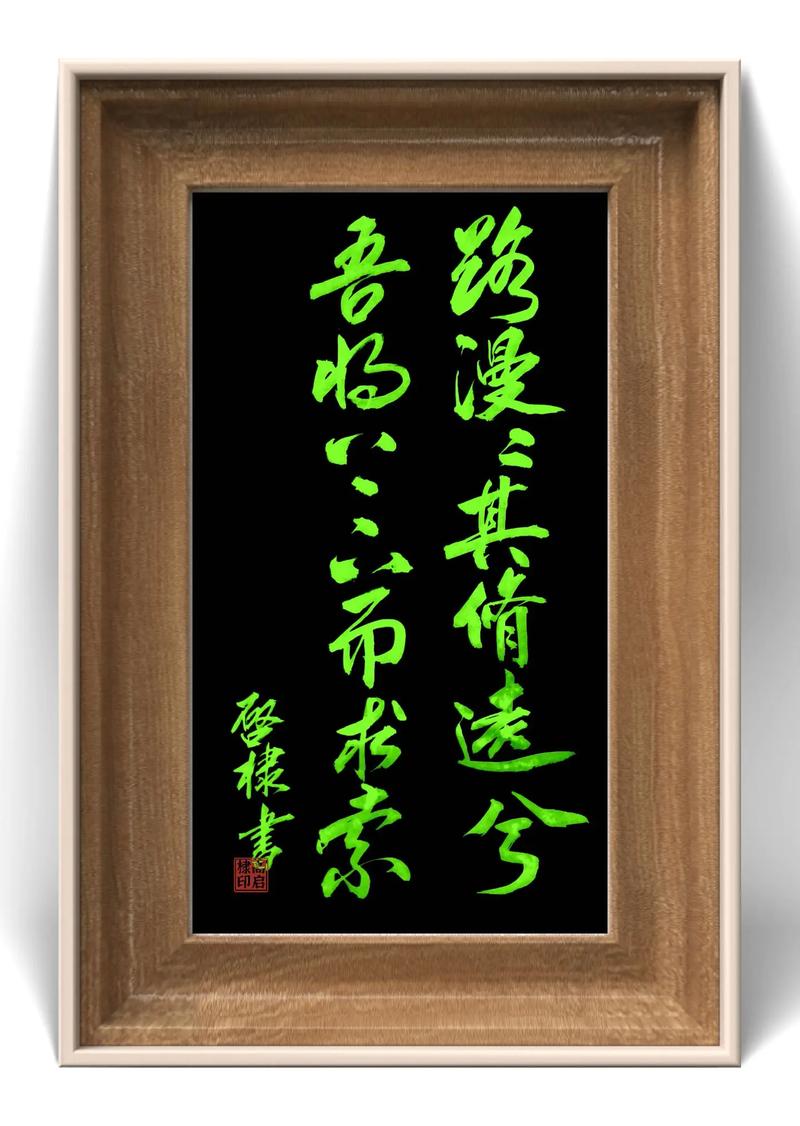 路漫々其脩遠兮
吾将上下而求索
啓棣書
启棣印